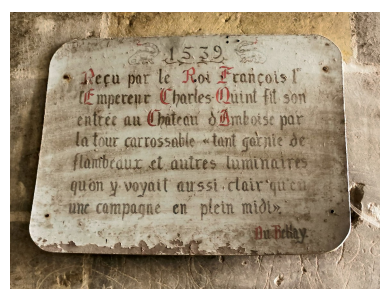 1539
Reçu par le Roi François I
l'Empereur Charles-Quint fit son
entrée au Château d'Amboise par
la tour carrossable « tant garnie de
flambeaux et autres luminaires
qu'on y voyait aussi clair qu'en
une campagne en plein midi».
Du Bellay